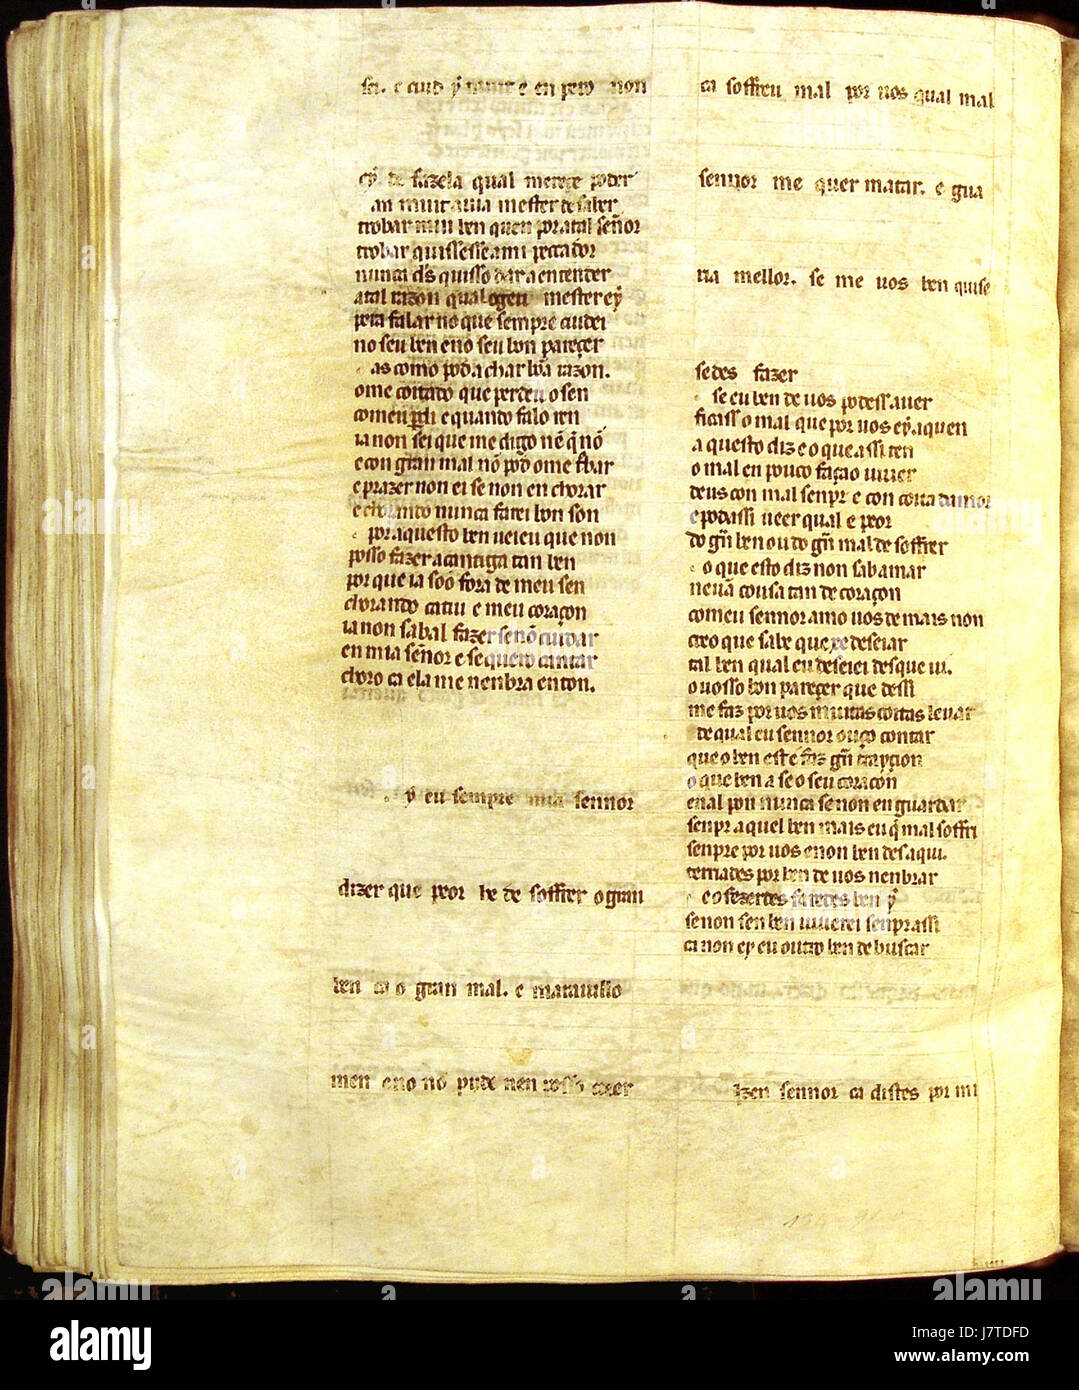 sei. e cuid q̄ morte e en pero non
ey de fazela qual merece poder
an muit auia mester de saber
trobar mui ben quen por atal señor
trobar quissesse ami peccador
nunca d's quisso dar a entender
atal razon qual ogeu mester ey
pera falar no que sempre cuidei
no seu ben eno seu bon pareçer
as como pod achar bõa razon.
ome coitado que perdeu o sen
com eu perdi e quando falo ren
ia non sei que me digo nē q̄ nõ
e con gran mal nõ pod ome trobar
e prazer non ei se non en chorar
e chorando nunca farei bon son
por aquesto ben ueieu que non
posso fazer a cantiga tan ben
por que ia soo fora de meu sen
chorando catiu e meu coraçon
ia non sab al fazer senõ cuidar
en mia señor e se quero cantar
choro ca ela me nenbra enton.
q̄ eu sempre mia sennor
dizer que peor he de soffrer o gran
ben ca o gran mal. e marauillo
men eno nõ pude nen posso creer
ca soffreu mal por uos qual mal
sennor me quer matar. e gua
ria mellor. se me uos ben quise
sedes fazer
se eu ben de uos podess auer
ficass o mal que por uos ey aquen
a questo diz e o que assi ten
o mal en pouco façao uiuer
deus con mal senpr e con coita damor
e podassi ueer qual e peor
do gñ ben ou do gñ mal de soffrer
o que esto diz non sab amar
neuã cousa tan de coraçon
com eu sennor amo uos de mais non
creo que sabe que xe deseiar
tal ben qual eu deseiei des que ui.
o uosso bon pareçer que dessi
me faz por uos muitas coitas leuar
de qual eu sennor ouço contar
que o ben est e faz gñ trayçion
o que ben a se o seu coraçon
en al pon nunca se non en guardar
senpr aquel ben mais eu q̄ mal soffri
senpre por uos e non ben des aqui.
terriades por ben de uos nenbrar
e o fezerdes faredes ben q̄
senon sen ben uiuerei senpr assi
ca non ey eu outro ben de buscar
sennor ca distes por mi